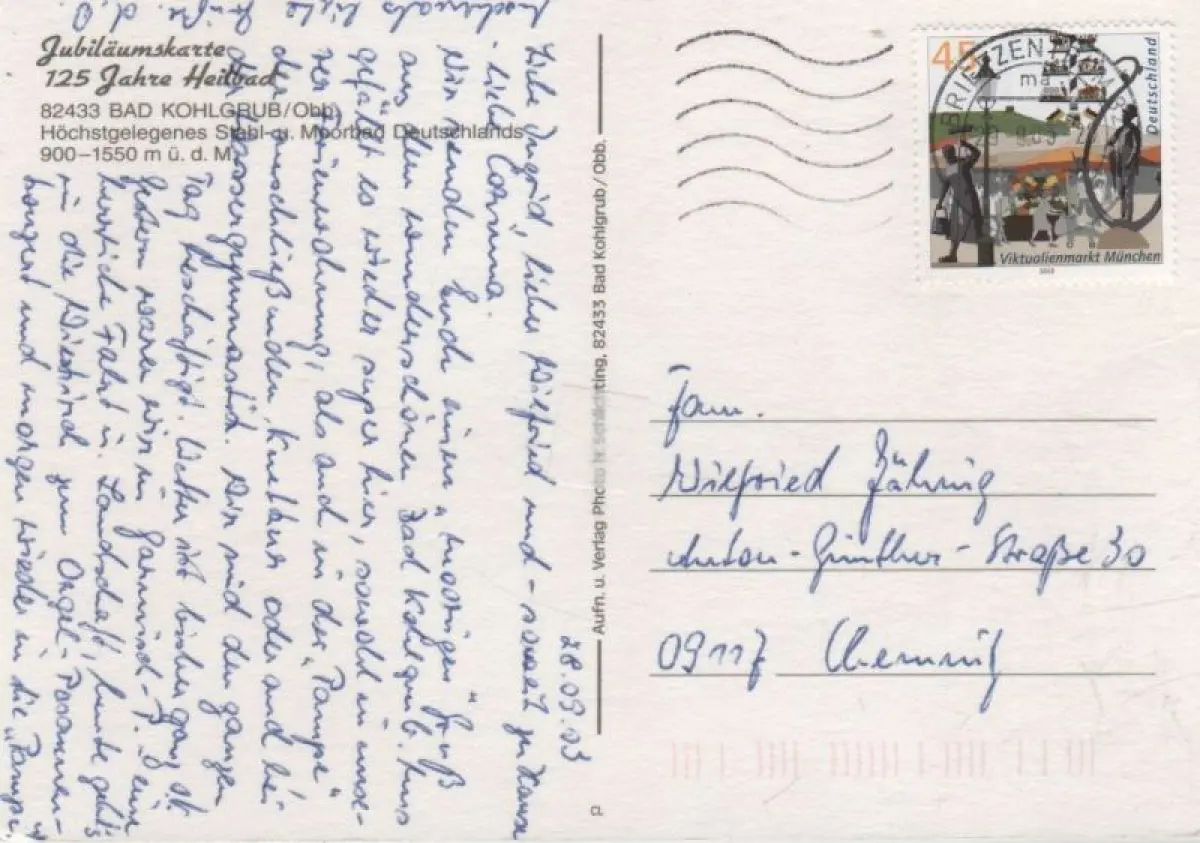 Jubiläumskarte
125 Jahre Heilbad
82433 BAD KOHLGRUB/Obb.
Höchstgelegenes Stahl- u. Moorbad Deutschlands
900–1550 m ü. d. M.
28.09.03
Liebe Ingrid, lieber Wilfried und – soweit zu Hause
– liebe Corinna.
Wir senden Euch einen "moorigen" Gruß
aus dem wunderschönen Bad Kohlgrub. Uns
gefällt es wieder super hier, sowohl in unse-
rer Ferienwohnung, als auch in der "Pampe",
der anschließenden Knetkur oder auch bei
der Wassergymnastik. Wir sind den ganzen
Tag beschäftigt. Wetter ist bisher ganz gut.
Gestern waren wir in Garmisch-P. Eine
herrliche Fahrt u. Landschaft, heute geht's
in die Wieskirch zum Orgel-Posaunen-
konzert und morgen wieder in die "Pampe"
Aufn. u. Verlag Photo H. Schlichting, 82433 Bad Kohlgrub/Obb.
45
Deutschland
Viktualienmarkt München
2003
BRIEFZENTRUM
Fam.
Wilfried Jähnig
Anton-Günther-Straße 30
09117 Chemnitz